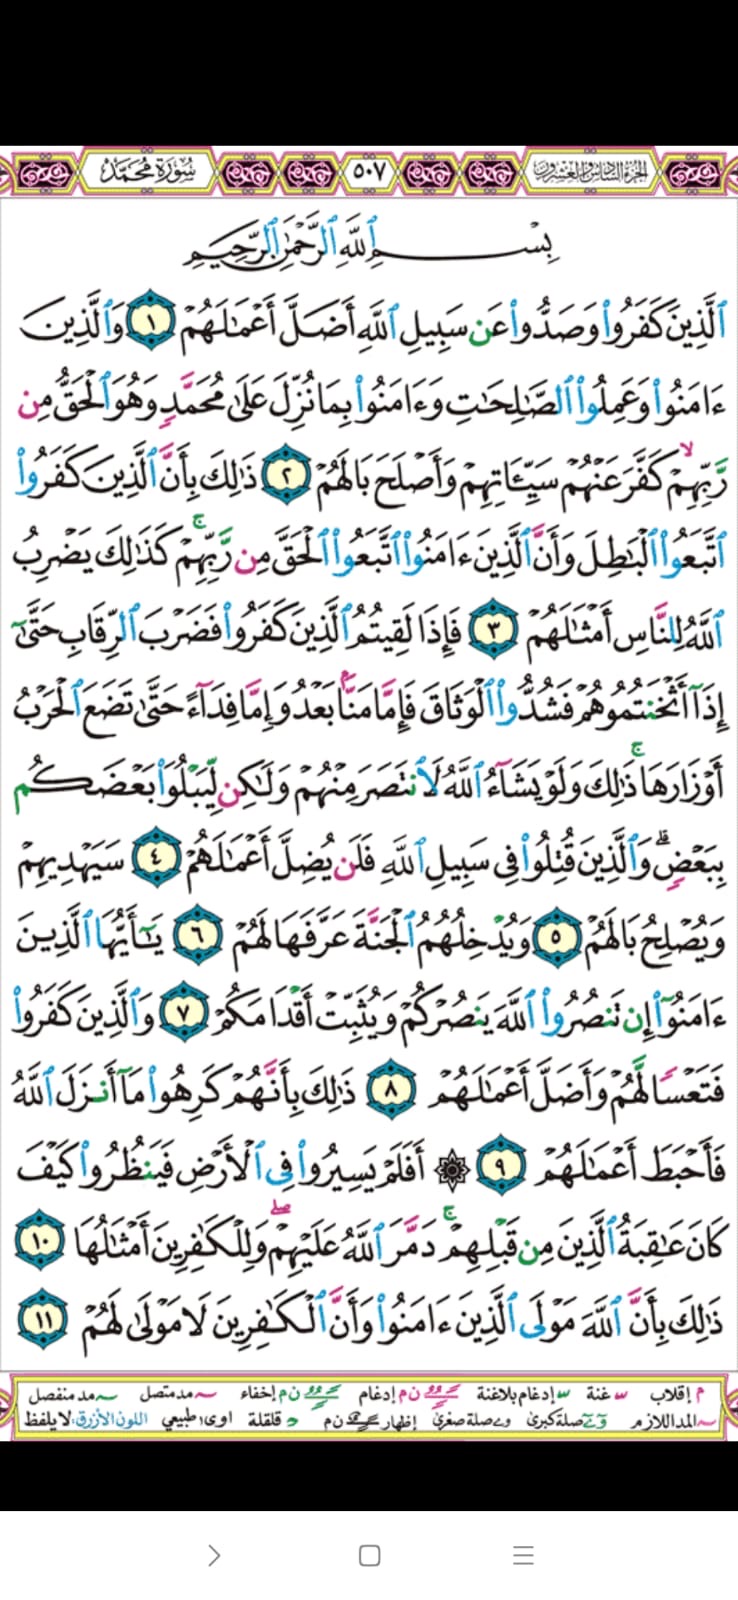 الجزء السادس والعشرون ٥٠٧ سورة محمد
بِسْمِ ٱللَّهِ ٱلرَّحْمَٰنِ ٱلرَّحِيمِ
ٱلَّذِينَ كَفَرُوا۟ وَصَدُّوا۟ عَن سَبِيلِ ٱللَّهِ أَضَلَّ أَعْمَٰلَهُمْ ١ وَٱلَّذِينَ
ءَامَنُوا۟ وَعَمِلُوا۟ ٱلصَّٰلِحَٰتِ وَءَامَنُوا۟ بِمَا نُزِّلَ عَلَىٰ مُحَمَّدٍ وَهُوَ ٱلْحَقُّ مِن
رَّبِّهِمْ ۙ كَفَّرَ عَنْهُمْ سَيِّـَٔاتِهِمْ وَأَصْلَحَ بَالَهُمْ ٢ ذَٰلِكَ بِأَنَّ ٱلَّذِينَ كَفَرُوا۟
ٱتَّبَعُوا۟ ٱلْبَٰطِلَ وَأَنَّ ٱلَّذِينَ ءَامَنُوا۟ ٱتَّبَعُوا۟ ٱلْحَقَّ مِن رَّبِّهِمْ ۚ كَذَٰلِكَ يَضْرِبُ
ٱللَّهُ لِلنَّاسِ أَمْثَٰلَهُمْ ٣ فَإِذَا لَقِيتُمُ ٱلَّذِينَ كَفَرُوا۟ فَضَرْبَ ٱلرِّقَابِ حَتَّىٰٓ
إِذَآ أَثْخَنتُمُوهُمْ فَشُدُّوا۟ ٱلْوَثَاقَ فَإِمَّا مَنًّۢا بَعْدُ وَإِمَّا فِدَآءً حَتَّىٰ تَضَعَ ٱلْحَرْبُ
أَوْزَارَهَا ۚ ذَٰلِكَ وَلَوْ يَشَآءُ ٱللَّهُ لَٱنتَصَرَ مِنْهُمْ وَلَٰكِن لِّيَبْلُوَا۟ بَعْضَكُم
بِبَعْضٍ ۗ وَٱلَّذِينَ قُتِلُوا۟ فِى سَبِيلِ ٱللَّهِ فَلَن يُضِلَّ أَعْمَٰلَهُمْ ٤ سَيَهْدِيهِمْ
وَيُصْلِحُ بَالَهُمْ ٥ وَيُدْخِلُهُمُ ٱلْجَنَّةَ عَرَّفَهَا لَهُمْ ٦ يَٰٓأَيُّهَا ٱلَّذِينَ
ءَامَنُوٓا۟ إِن تَنصُرُوا۟ ٱللَّهَ يَنصُرْكُمْ وَيُثَبِّتْ أَقْدَامَكُمْ ٧ وَٱلَّذِينَ كَفَرُوا۟
فَتَعْسًا لَّهُمْ وَأَضَلَّ أَعْمَٰلَهُمْ ٨ ذَٰلِكَ بِأَنَّهُمْ كَرِهُوا۟ مَآ أَنزَلَ ٱللَّهُ
فَأَحْبَطَ أَعْمَٰلَهُمْ ٩ ۞ أَفَلَمْ يَسِيرُوا۟ فِى ٱلْأَرْضِ فَيَنظُرُوا۟ كَيْفَ
كَانَ عَٰقِبَةُ ٱلَّذِينَ مِن قَبْلِهِمْ ۚ دَمَّرَ ٱللَّهُ عَلَيْهِمْ ۖ وَلِلْكَٰفِرِينَ أَمْثَٰلُهَا ١٠
ذَٰلِكَ بِأَنَّ ٱللَّهَ مَوْلَى ٱلَّذِينَ ءَامَنُوا۟ وَأَنَّ ٱلْكَٰفِرِينَ لَا مَوْلَىٰ لَهُمْ ١١
م إقلاب غنة إدغام بلاغنة ن م إدغام ن م إخفاء مد متصل مد منفصل
المد اللازم صلة كبرى صلة صغرى إظهار ن م قلقلة اوى طبيعي اللون الأزرق: لا يلفظ